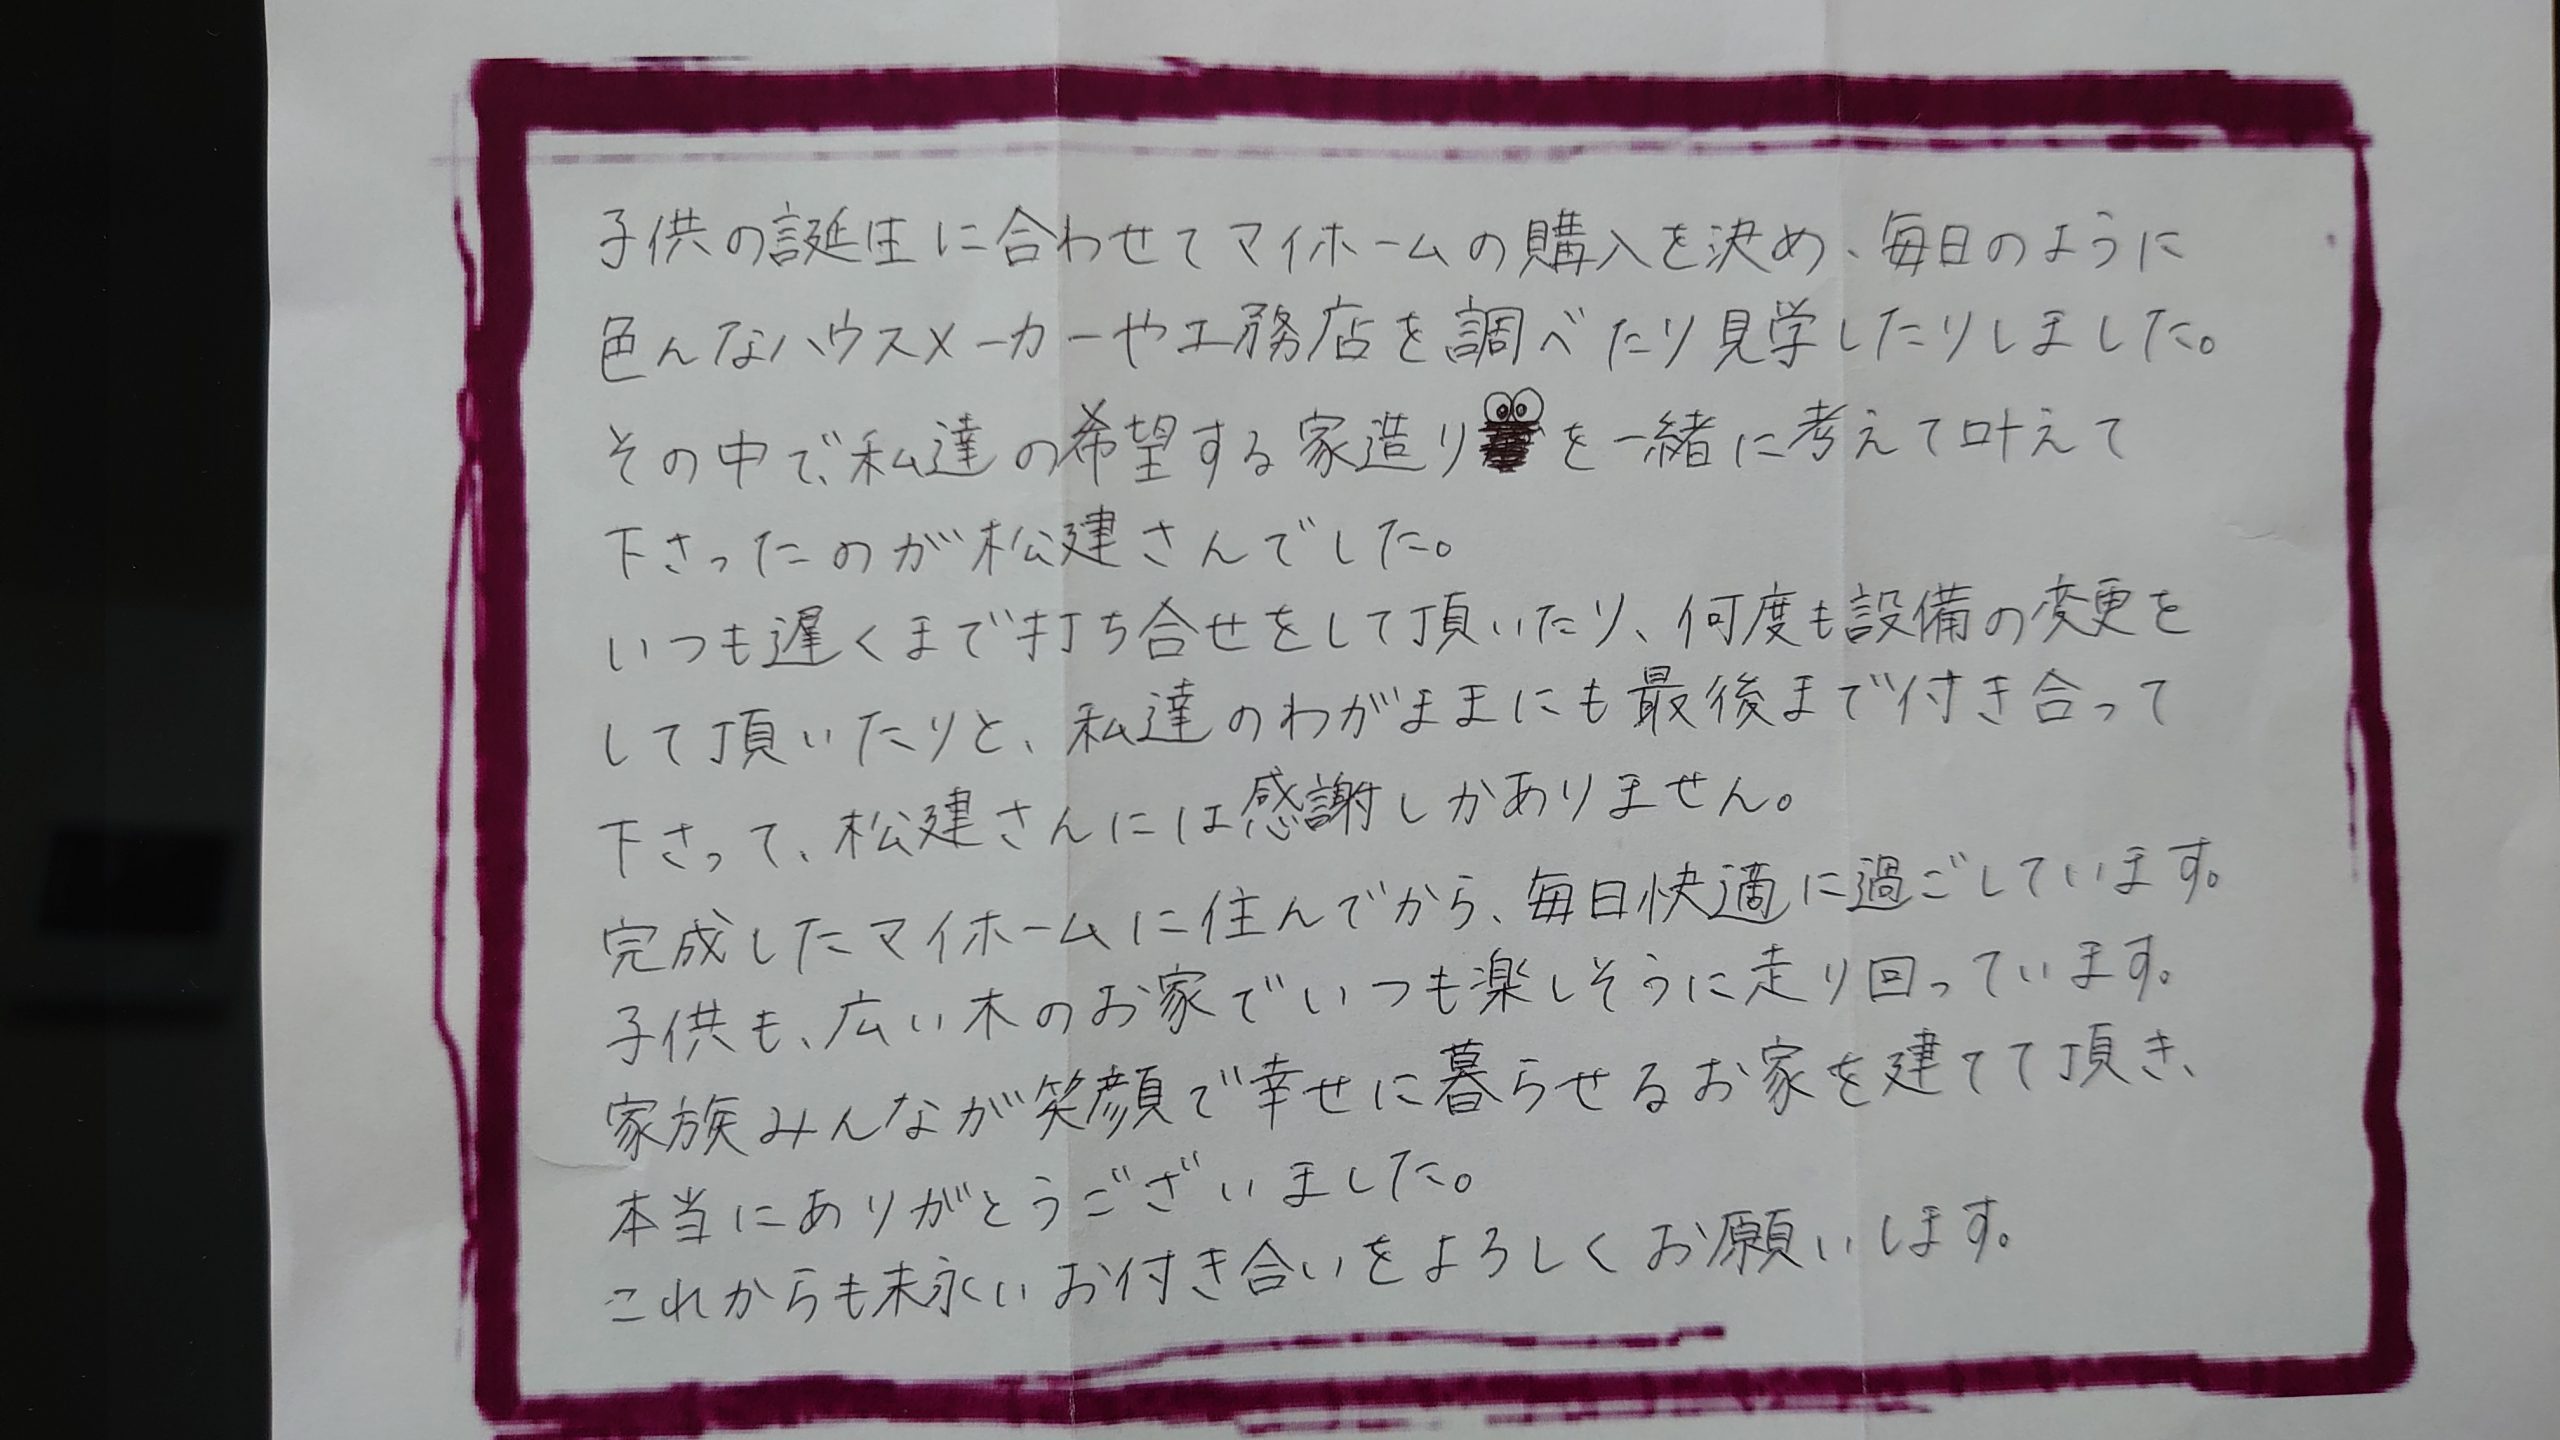 子供の誕生に合わせてマイホームの購入を決め、毎日のように
色んなハウスメーカーや工務店を調べたり見学したりしました。
その中で、私達の希望する家造りを一緒に考えて叶えて
下さったのが松建さんでした。
いつも遅くまで打ち合せをして頂いたり、何度も設備の変更を
して頂いたりと、私達のわがままにも最後まで付き合って
下さって、松建さんには感謝しかありません。
完成したマイホームに住んでから、毎日快適に過ごしています。
子供も、広い木のお家でいつも楽しそうに走り回っています。
家族みんなが笑顔で幸せに暮らせるお家を建てて頂き、
本当にありがとうございました。
これからも末永いお付き合いをよろしくお願いします。